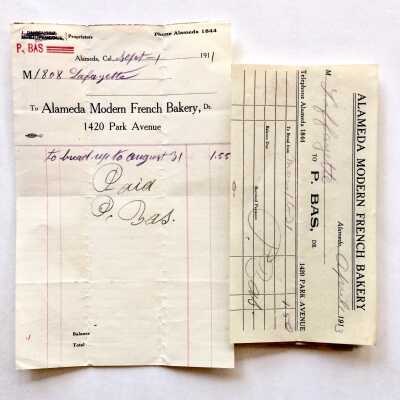 Proprietors
P. BAS
Phone Alameda 1844
Alameda, Cal. Sept - 1 1911
M 1808 Lafayette
To Alameda Modern French Bakery, Dr.
1420 Park Avenue
to bread up to august 31 1.55
Paid
P. Bas.
Balance
Total
ALAMEDA MODERN FRENCH BAKERY
Alameda, April 1913
M Lafayette
TO P. BAS, DR.
Telephone Alameda 1844
1420 PARK AVENUE
To Bread from
Balance Due
Received Payment
P. Bas.